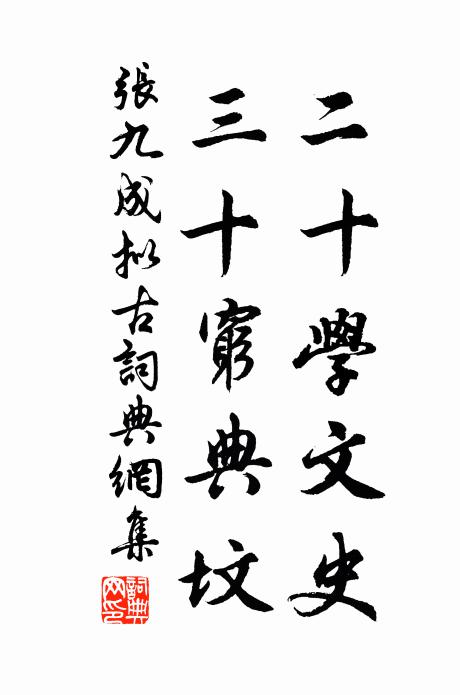 二十學文史
三十窮典坟
張九成拟古詞典網集
詞典网印